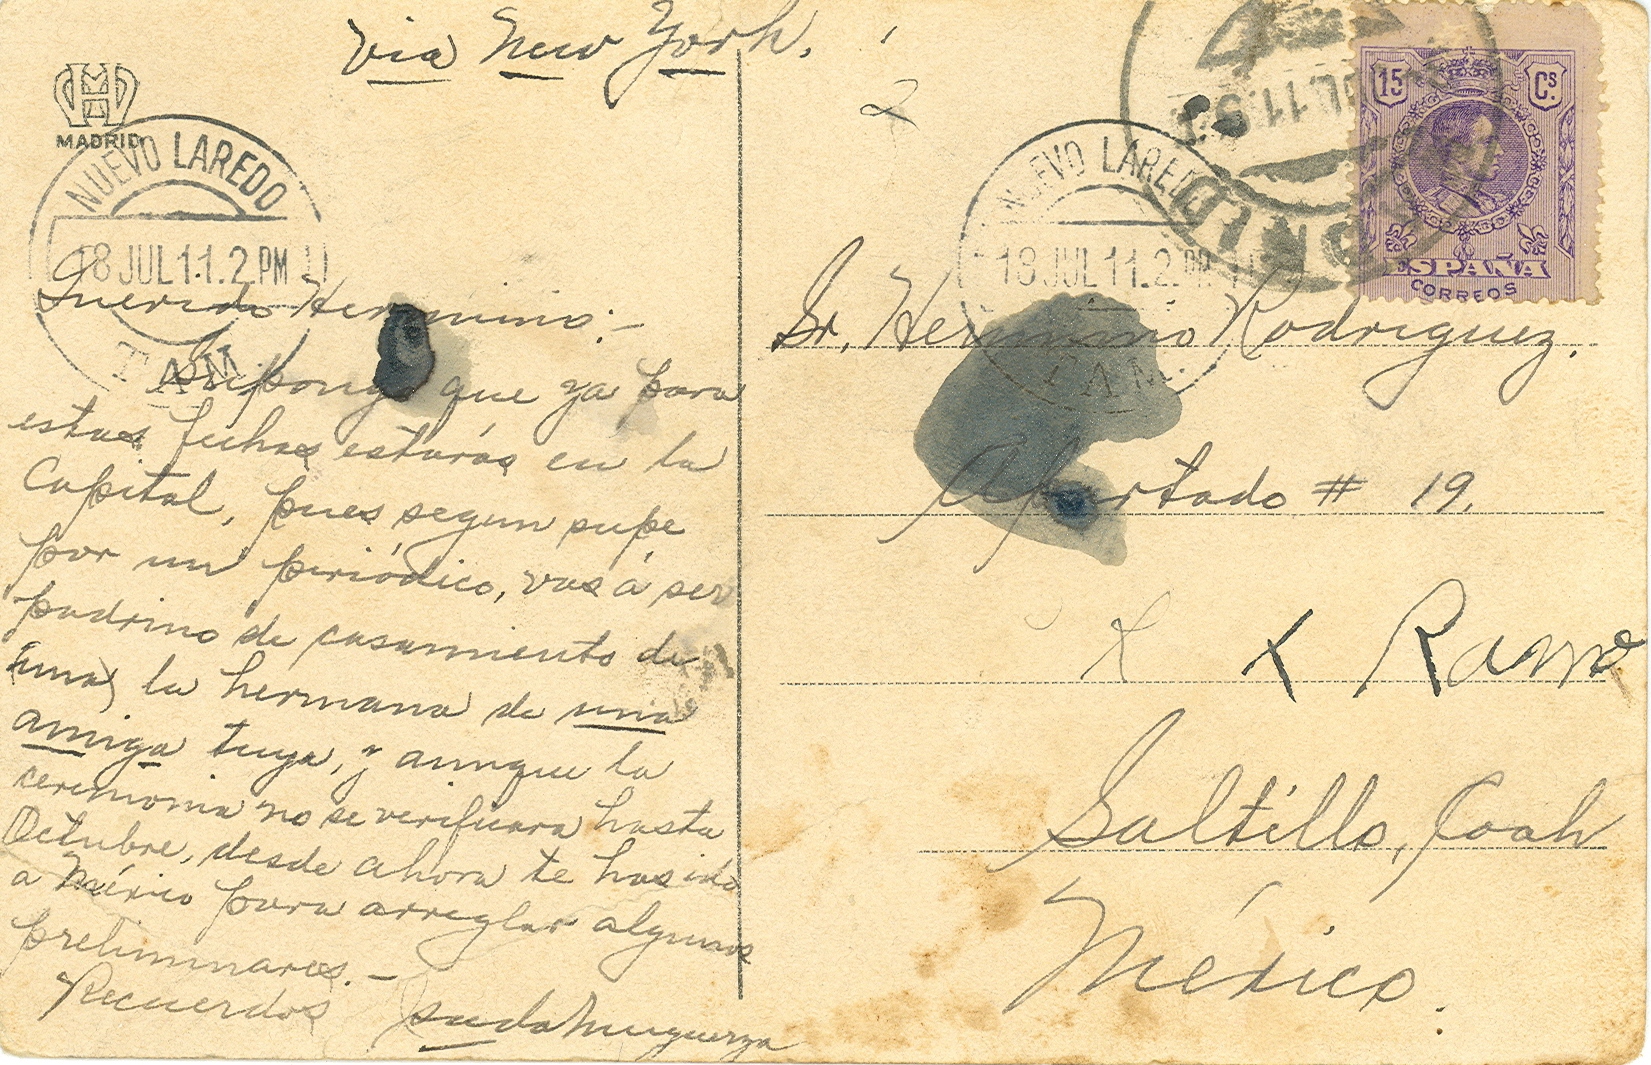 via New York.
MADRID
NUEVO LAREDO
18 JUL 11.2 PM
TAM
Querido Herminio:-
Supongo que ya para
estas fechas estarás en la
Capital, pues segun supe
por un periódico, vas á ser
padrino de casamiento de
(una) la hermana de una
amiga tuya, y aunque la
ceremonia no se verificara hasta
Octubre, desde ahora te has ido
a México para arreglar algunos
preliminares.-
Recuerdos
JUL 11.9
15 Cs.
ESPAÑA
CORREOS
NUEVO LAREDO
18 JUL 11.2 PM
TAM.
Sr. Herminio Rodriguez.
Apartado # 19.
X X Ramo
Saltillo, Coah
México.